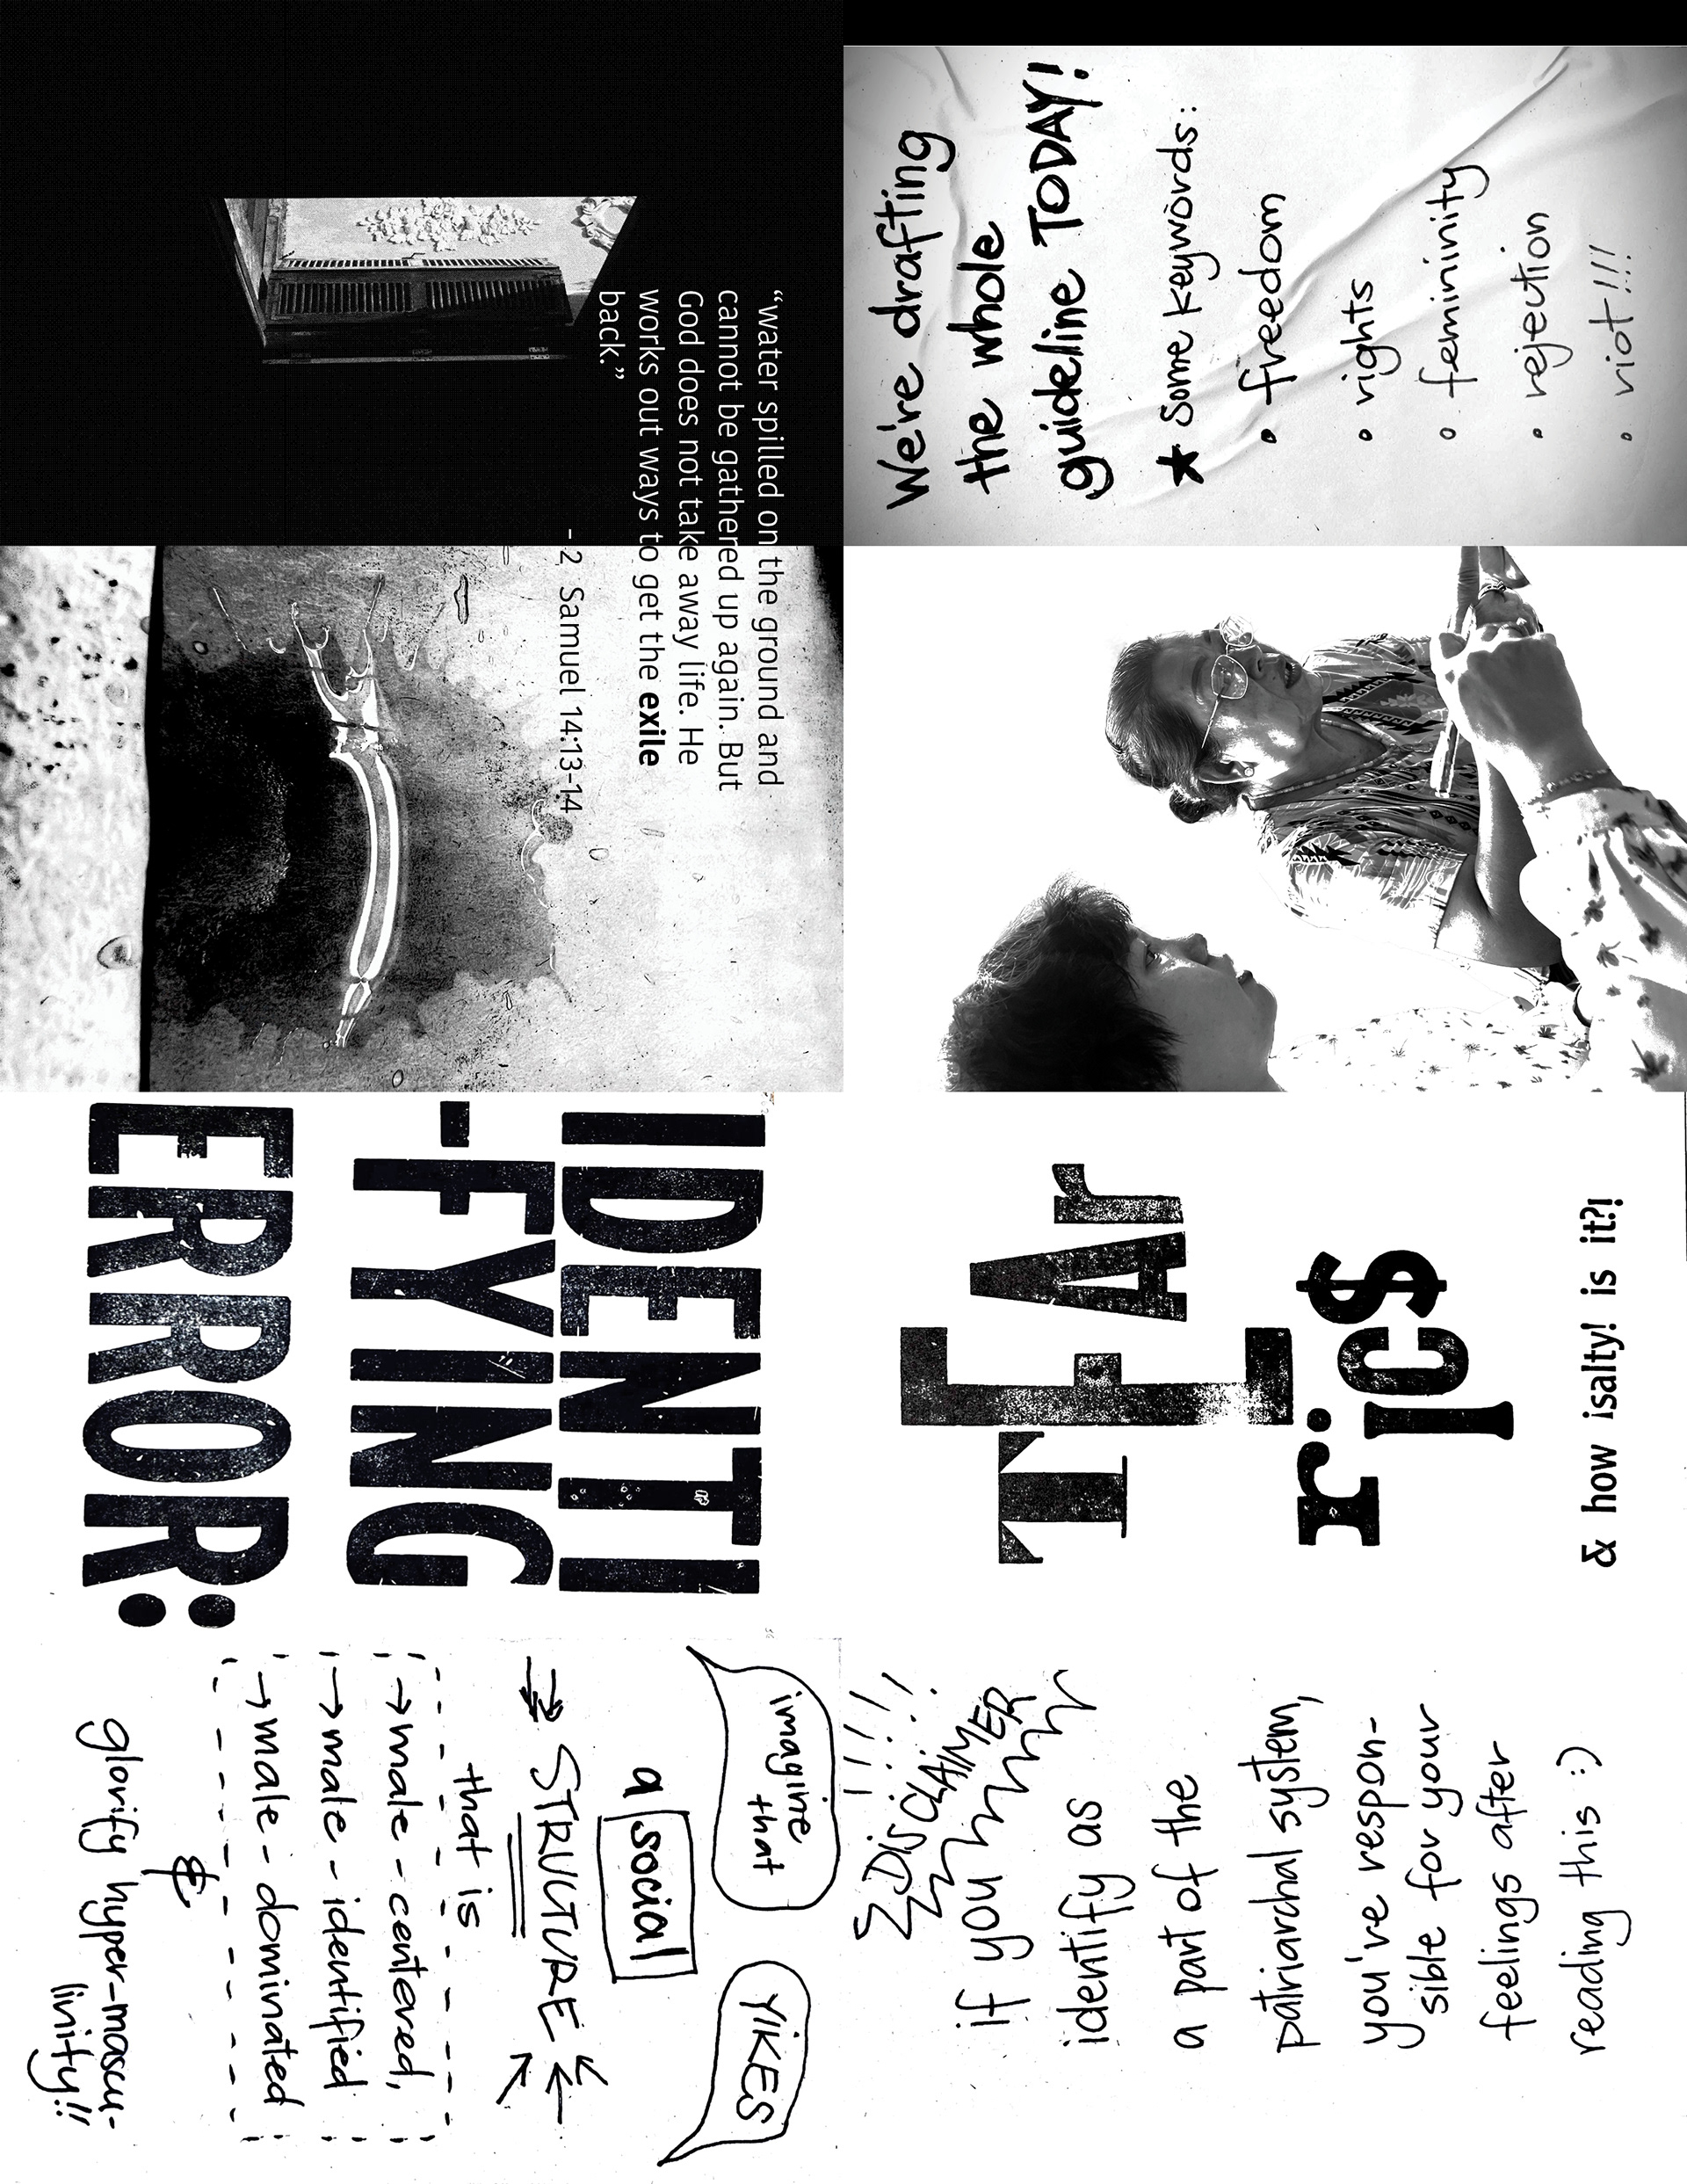 TEAr
ric$
& how ¡salty! is it?!
DISCLAIMER !!!!!
if you
identify as
a part of the
patriarchal system,
you've respon-
sible for your
feelings after
reading this :)
imagine
that
YIKES
a social
STRUCTURE
that is
→ male-centered,
→ male-identified
→ male-dominated
&
glorify hyper-mascu-
linity!!
IDENTI
-FYING
ERROR:
“water spilled on the ground and
cannot be gathered up again. But
God does not take away life. He
works out ways to get the exile
back.”
- 2 Samuel 14:13-14
We're drafting
the whole
guideline TODAY!
★ Some keywords:
• freedom
• rights
• femininity
• rejection
• riot!!!